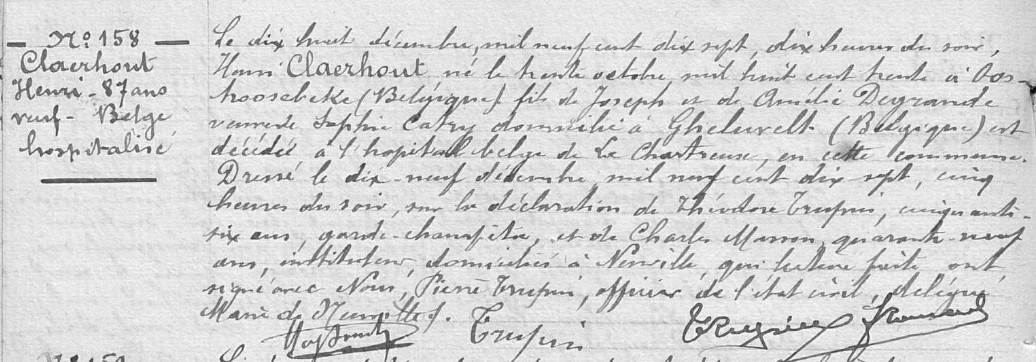 N° 158
Claerhout
Henri - 87 ans
veuf - Belge
hospitalisé
Le dix huit décembre, mil neuf cent dix sept, dix heures du soir,
Henri Claerhout né le trente octobre mil huit cent trente à Oos-
hoosebeke (Belgique) fils de Joseph et de Amélie Degrande
veuf de Sophie Catry domicilié à Gheluvelt (Belgique) est
décédé à l'hopital belge de La Chartreuse, en cette commune.
Dressé le dix-neuf décembre mil neuf cent dix sept, cinq
heures du soir, sur la déclaration de Théodore Trupin, cinquante
six ans, garde-champêtre, et de Charles Masson, quarante-neuf
ans, instituteur, domiciliés à Neuville, qui lecture faite ont
signé avec Nous, Pierre Trupin, officier de l'état civil, délégué
Mairie de Neuville.
Trupin
N° 159